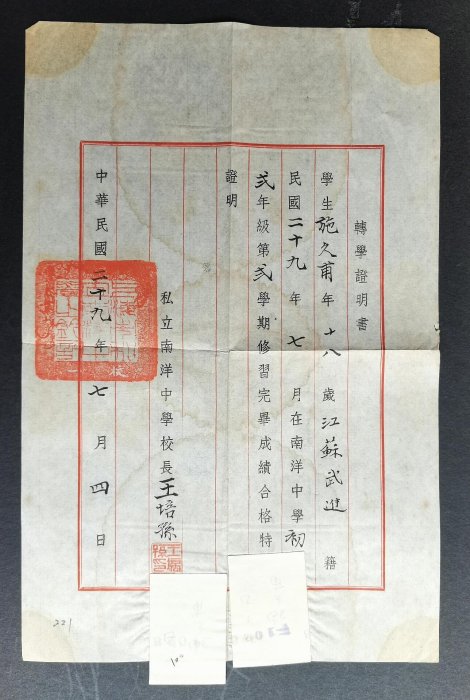 轉學證明書
學生施久甫年十八歲江蘇武進籍
民國二十九年七月在南洋中學初
弍年級第弍學期修習完畢成績合格特
證明
私立南洋中學校長王培孫
中華民國二十九年七月四日
221